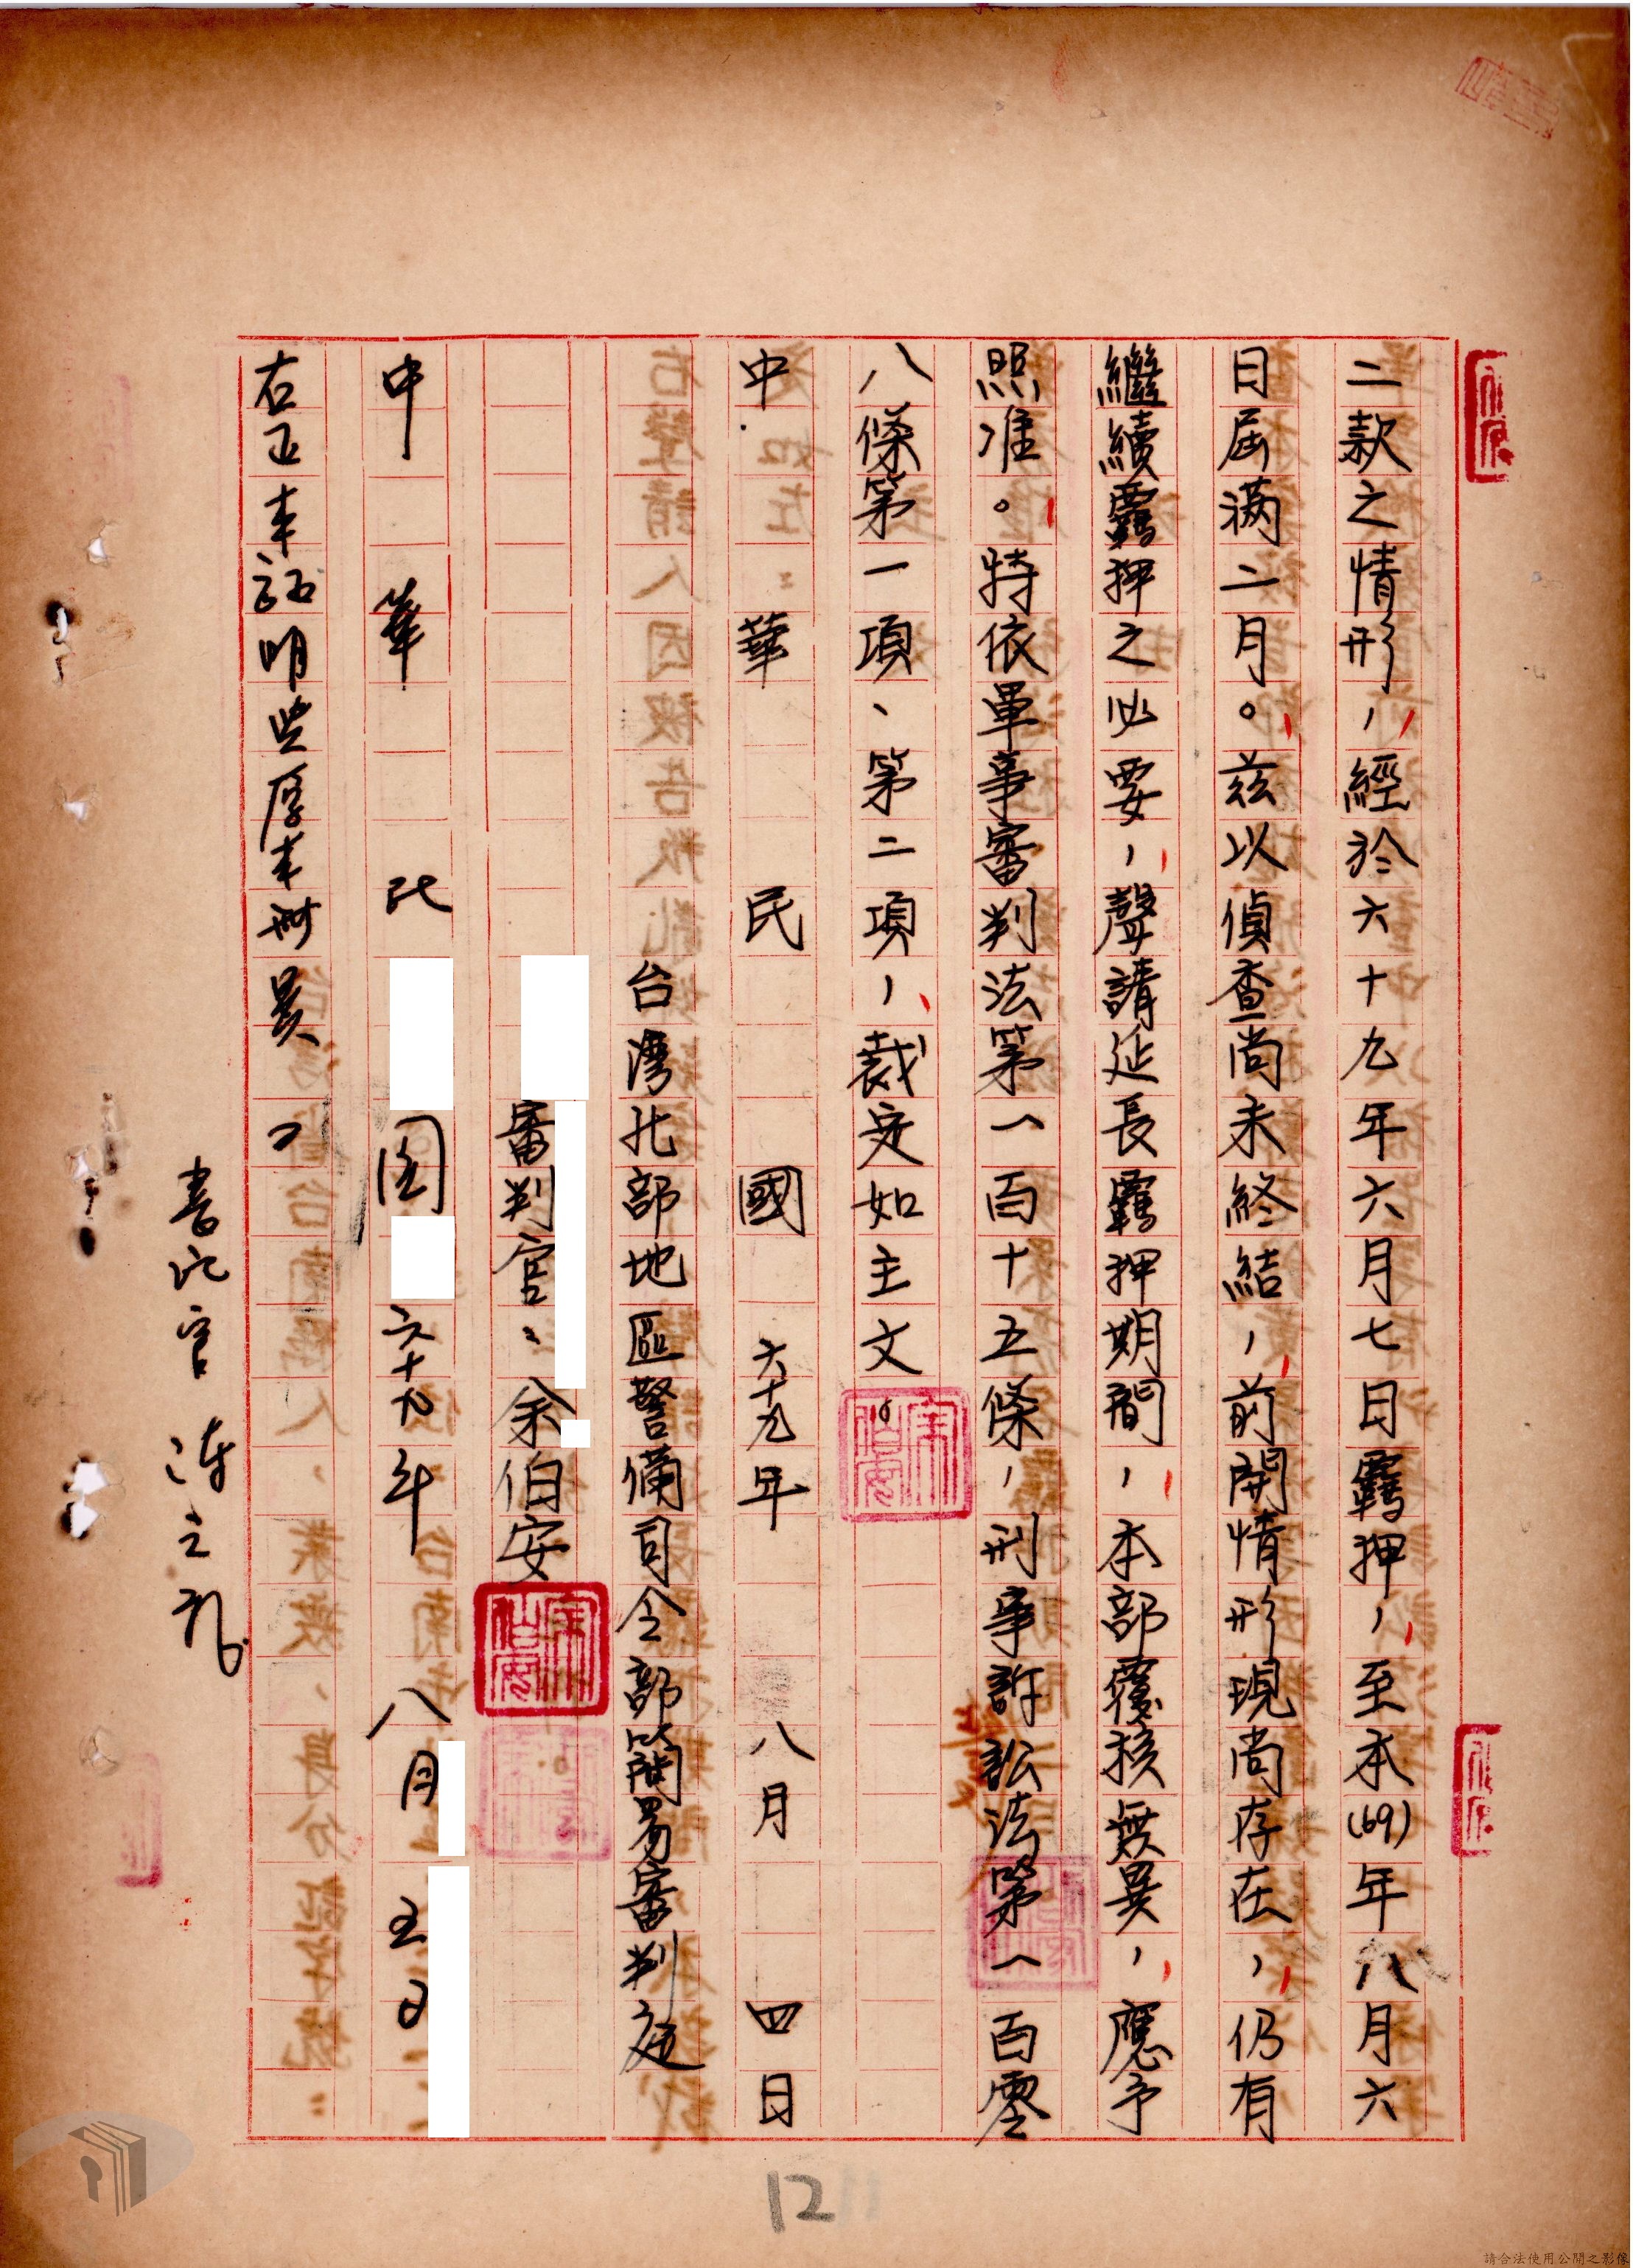 二款之情形，經於六十九年六月七日羈押，至本(69)年八月六
日屆滿二月。茲以偵查尚未終結，前開情形現尚存在，仍有
繼續羈押之必要，聲請延長羈押期間，本部覆核無異，應予
照准。特依軍事審判法第一百十五條，刑事訴訟法第一百零
八條第一項、第二項，裁定如主文。
中華民國六十九年八月四日
台灣北部地區警備司令部簡易審判庭
審判官：余伯安
中華民國六十九年八月五日
右正本証明與原本無異。
書記官
12
請合法使用公開之影像